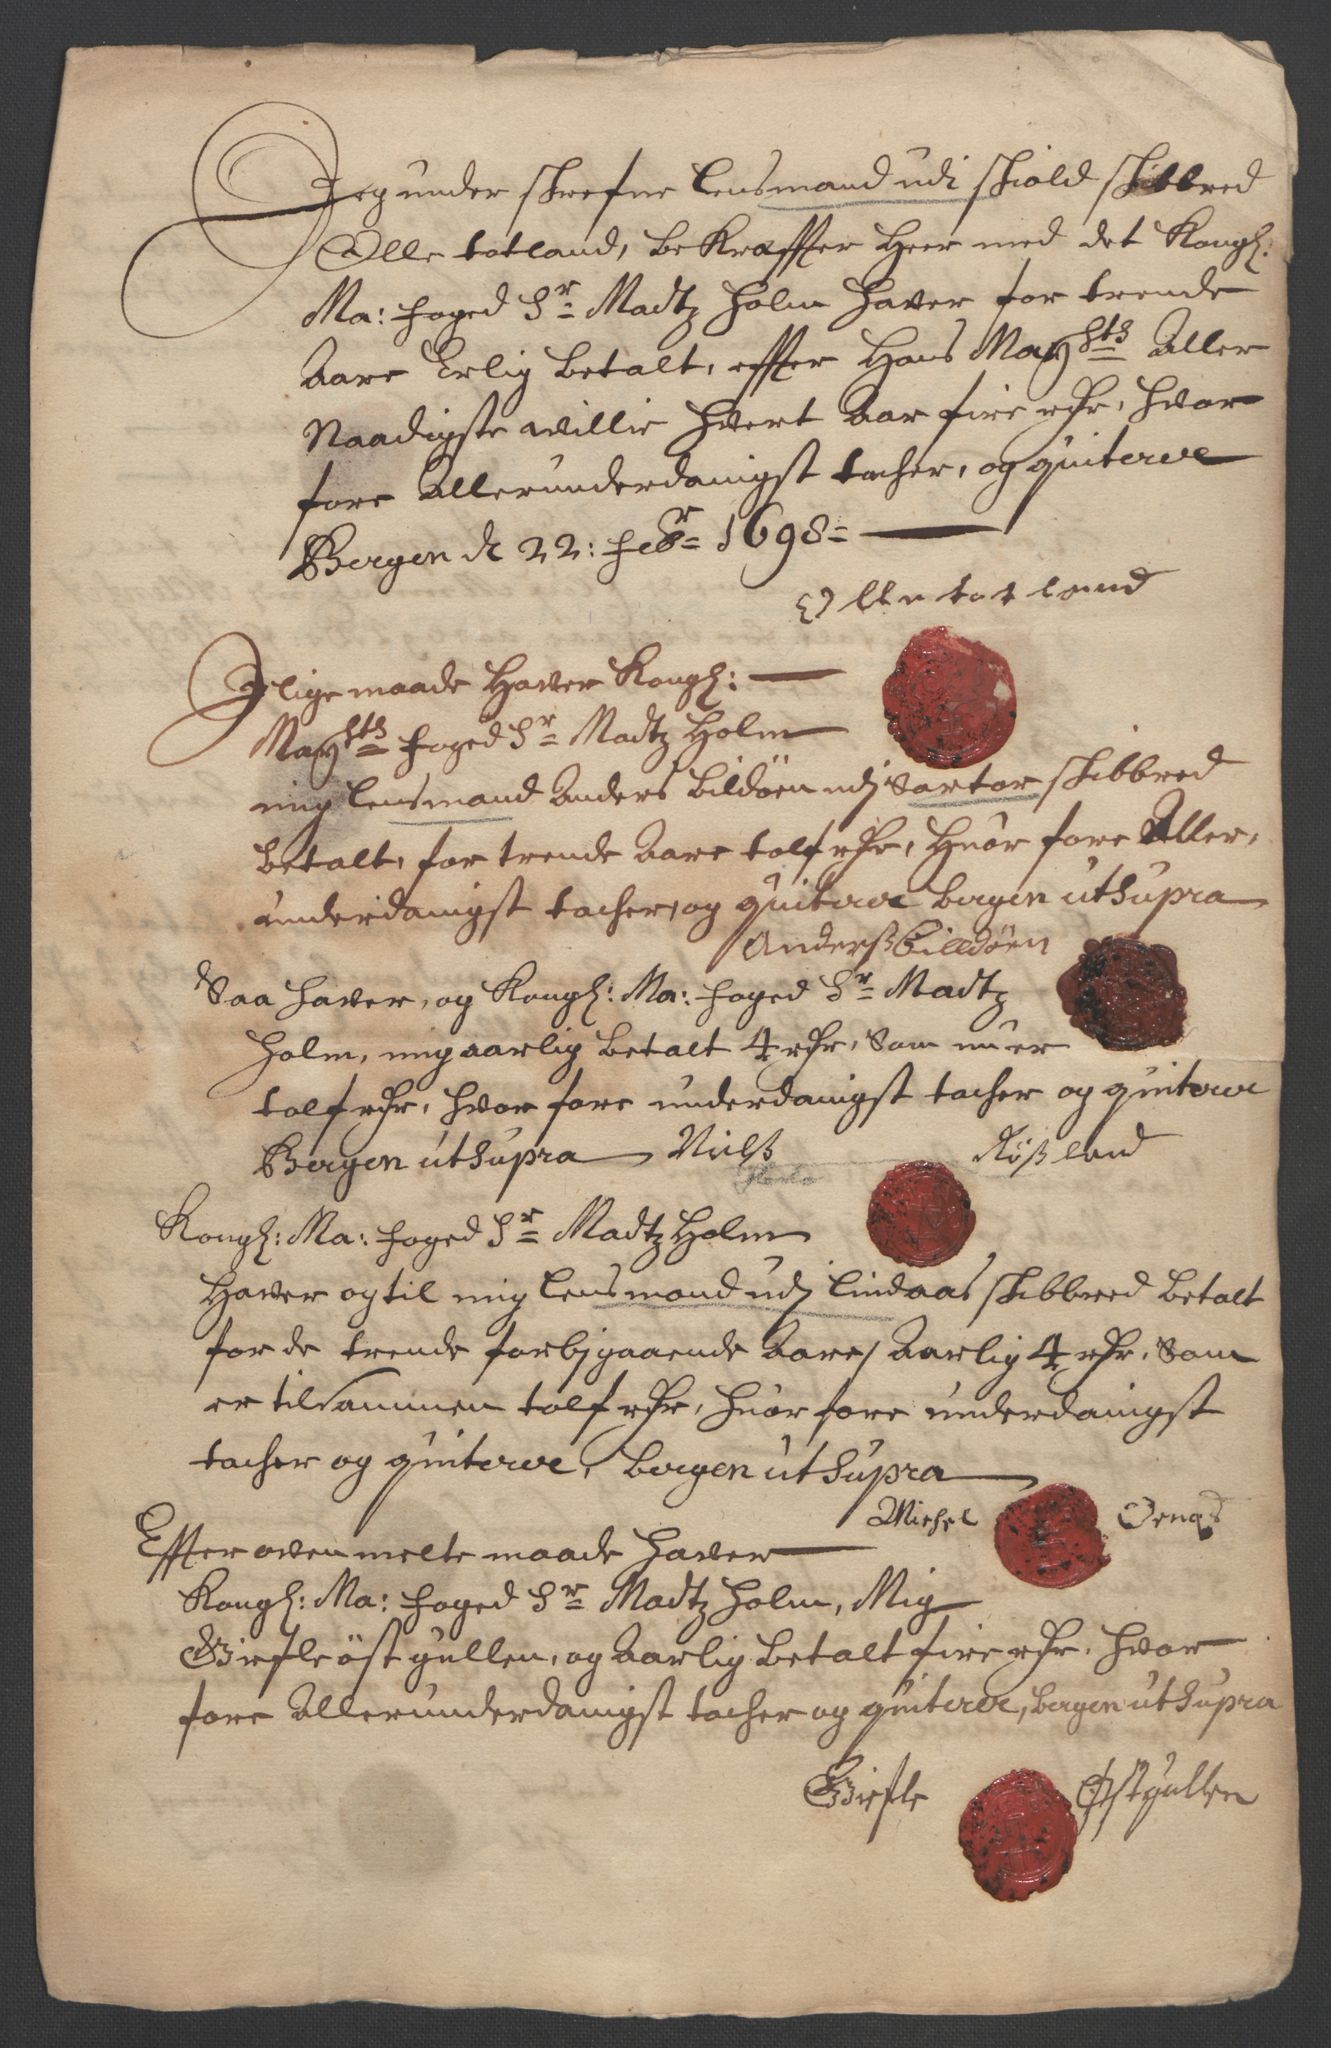 Jeg under skrefne lensmand udi skiold skibbred
Olle totland, bekreffter heer med det Kongl:
Ma: foged Sr Madtz Holm haver for trende
Aare Erlig betalt, effter Hans Mayhts Aller
Naadigste willie hvert Aar fire rdr, hvor
fore Allerunderdanigst tacher, og quiterer
Bergen de 22: febr 1698
Olle totland
J lige maade haver Kongl:
Mayhts foged Sr Madtz Holm
mig lensmand Anders bildøen udj Sartor skibbred
betalt, for trende Aare tolf rdr, huor fore Aller,
underdanigst tacher, og quiterer bergen ut supra
Anderß billdøen
Saa haver, og Kongl: Ma: foged Sr Madtz
Holm, mig aarlig betalt 4 rdr, som nu er
tolf rdr, hvor fore underdanigst tacher og quiterer
Bergen ut supra Nielß Røßland
Herlø
Kongl: Ma: foged Sr Madtz Holm
haver og til mig lensmand udj lindaas skibbred betalt
for de trende forbjgaaende Aare, Aarlig 4 rdr, som
er tilsammen tolf rdr, huor fore underdanigst
tacher og quiterer, bergen ut supra
Michel Ornes
Effter oven melte maade haver
Kongl: Ma: foged Sr Madtz Holm, Mig
Giefle östgullen, og Aarlig betalt fire rdr, hvor
fore Allerunderdanigst tacher og quiterer, bergen ut supra
Giefle Østgullen